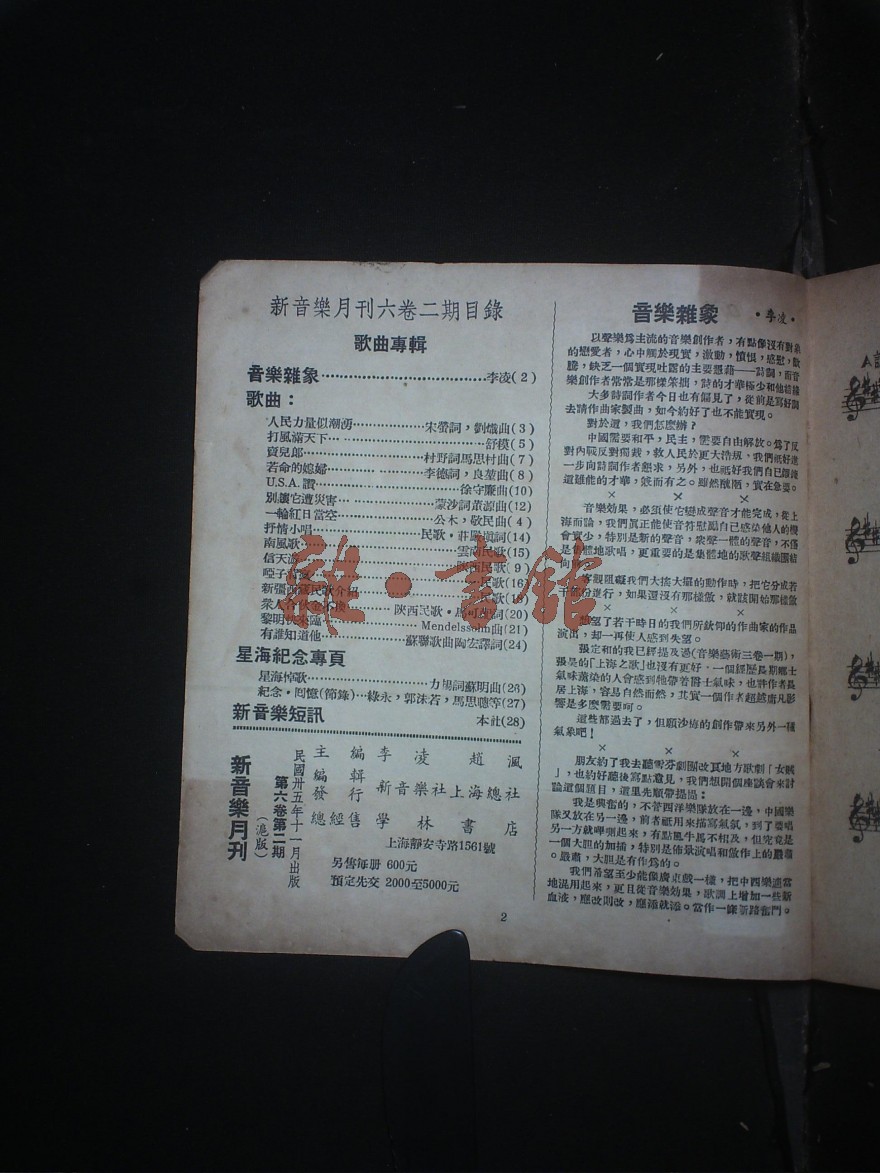 新音樂月刊六卷二期目錄
歌曲專輯
音樂雜象 李凌(2)
歌曲：
人民力量似潮湧 宋螢詞，劉熾曲(3)
打風滿天下 舒模(5)
賣兒郎 村野詞馬思村曲(7)
苦命的媳婦 李德詞，良堃曲(8)
U.S.A.讚 徐守廉曲(10)
別讓它遭災害 蒙沙詞董源曲(12)
一輪紅日當空 公木，敬民曲(4)
抒情小唱 民歌・莊嚴 詞(14)
南風歌 雲南民歌(15)
信天游 陝西民歌(9)
啞子 民歌(16)
新疆西 民歌介紹 民歌(18)
衆人合伙金不換 陝西民歌・馬可 詞(20)
黎明快來臨 Mendelssohn曲(21)
有誰知道他 蘇聯歌曲陶宏譯詞(24)
星海紀念專頁
星海悼歌 力揚詞蘇明曲(26)
紀念・回憶(節錄) 綠永，郭沫若，馬思聰等(27)
新音樂短訊 本社(28)
新音樂月刊
第六卷第二期
(滬版)
民國卅五年十一月出版
主編 李凌 趙渢
編輯 新音樂社上海總社
發行
總經售 學林書店
上海靜安寺路1561號
另售每册 600元
預定先交 2000至5000元
2
音樂雜象 ・李凌・
以聲樂爲主流的音樂創作者，有點像沒有對象
的戀愛者，心中觸於現實，激動，憤恨，感慰，歡
騰，缺乏一個實現吐露的主要憑藉——詩詞，而音
樂創作者常常是那樣笨拙，詩的才華極少和他結緣
大多詩詞作者今日也有偏見了，從前是寫好詞
去請作曲家製曲，如今約好了也不能實現。
對於這，我們怎麼辦？
中國需要和平，民主，需要自由解放。爲了反
對內戰反對獨裁，救人民於更大浩規，我們祇好進
一步向詩詞作者懇求，另外，也祇好我們自已鍛鍊
這難能的才華，從而有之。雖然醜陋，實在急要。
× × ×
音樂效果，必須使它變成聲音才能完成，從上
海而論，我們真正能使音符慰勵自已感染他人的機
會實少，特別是新的聲音，衆聲一體的聲音，不僅
是集體地歌唱，更重要的是集體地的歌聲組織團結
向前。
客觀阻礙我們大搞大擂的動作時，把它分成若
干部份進行，如果還沒有那樣做，就該開始那樣做
× × ×
盼望了若干時日的我們所欽仰的作曲家的作品
演出，却一再使人感到失望。
張定和的我已經提及過(音樂藝術三卷一期)，
張昊的「上海之歌」也沒有更好．一個經歷長期鄉士
氣味薰染的人會感到牠帶若爵士氣味，也許作者長
居上海，容易自然而然，其實一個作者超越庸凡影
響是多麼需要呵。
這些都過去了，但願沙梅的創作帶來另外一種
氣象吧！
× × ×
朋友約了我去聽雪芬劇團改其地方歌劇「女賊
」，也約好聽後寫點意見，我們想開個座談會來討
論這個題目，這里先順帶提提：
我是興奮的，不管西洋樂隊放在一邊，中國樂
隊又放在另一邊，前者祇用來描寫氣氛，到了要唱
另一方就呷嘲起來，有點風牛馬不相及，但究竟是
一個大胆的加插，特別是佈景演唱和做作上的嚴肅
。嚴肅，大胆是有作爲的。
我們希望至少能像廣東戲一樣，把中西樂適當
地混用起來，更且從音樂效果，歌調上增加一些新
血液，應改則改，應添就添。當作一條新路奮鬥。
雜・書館